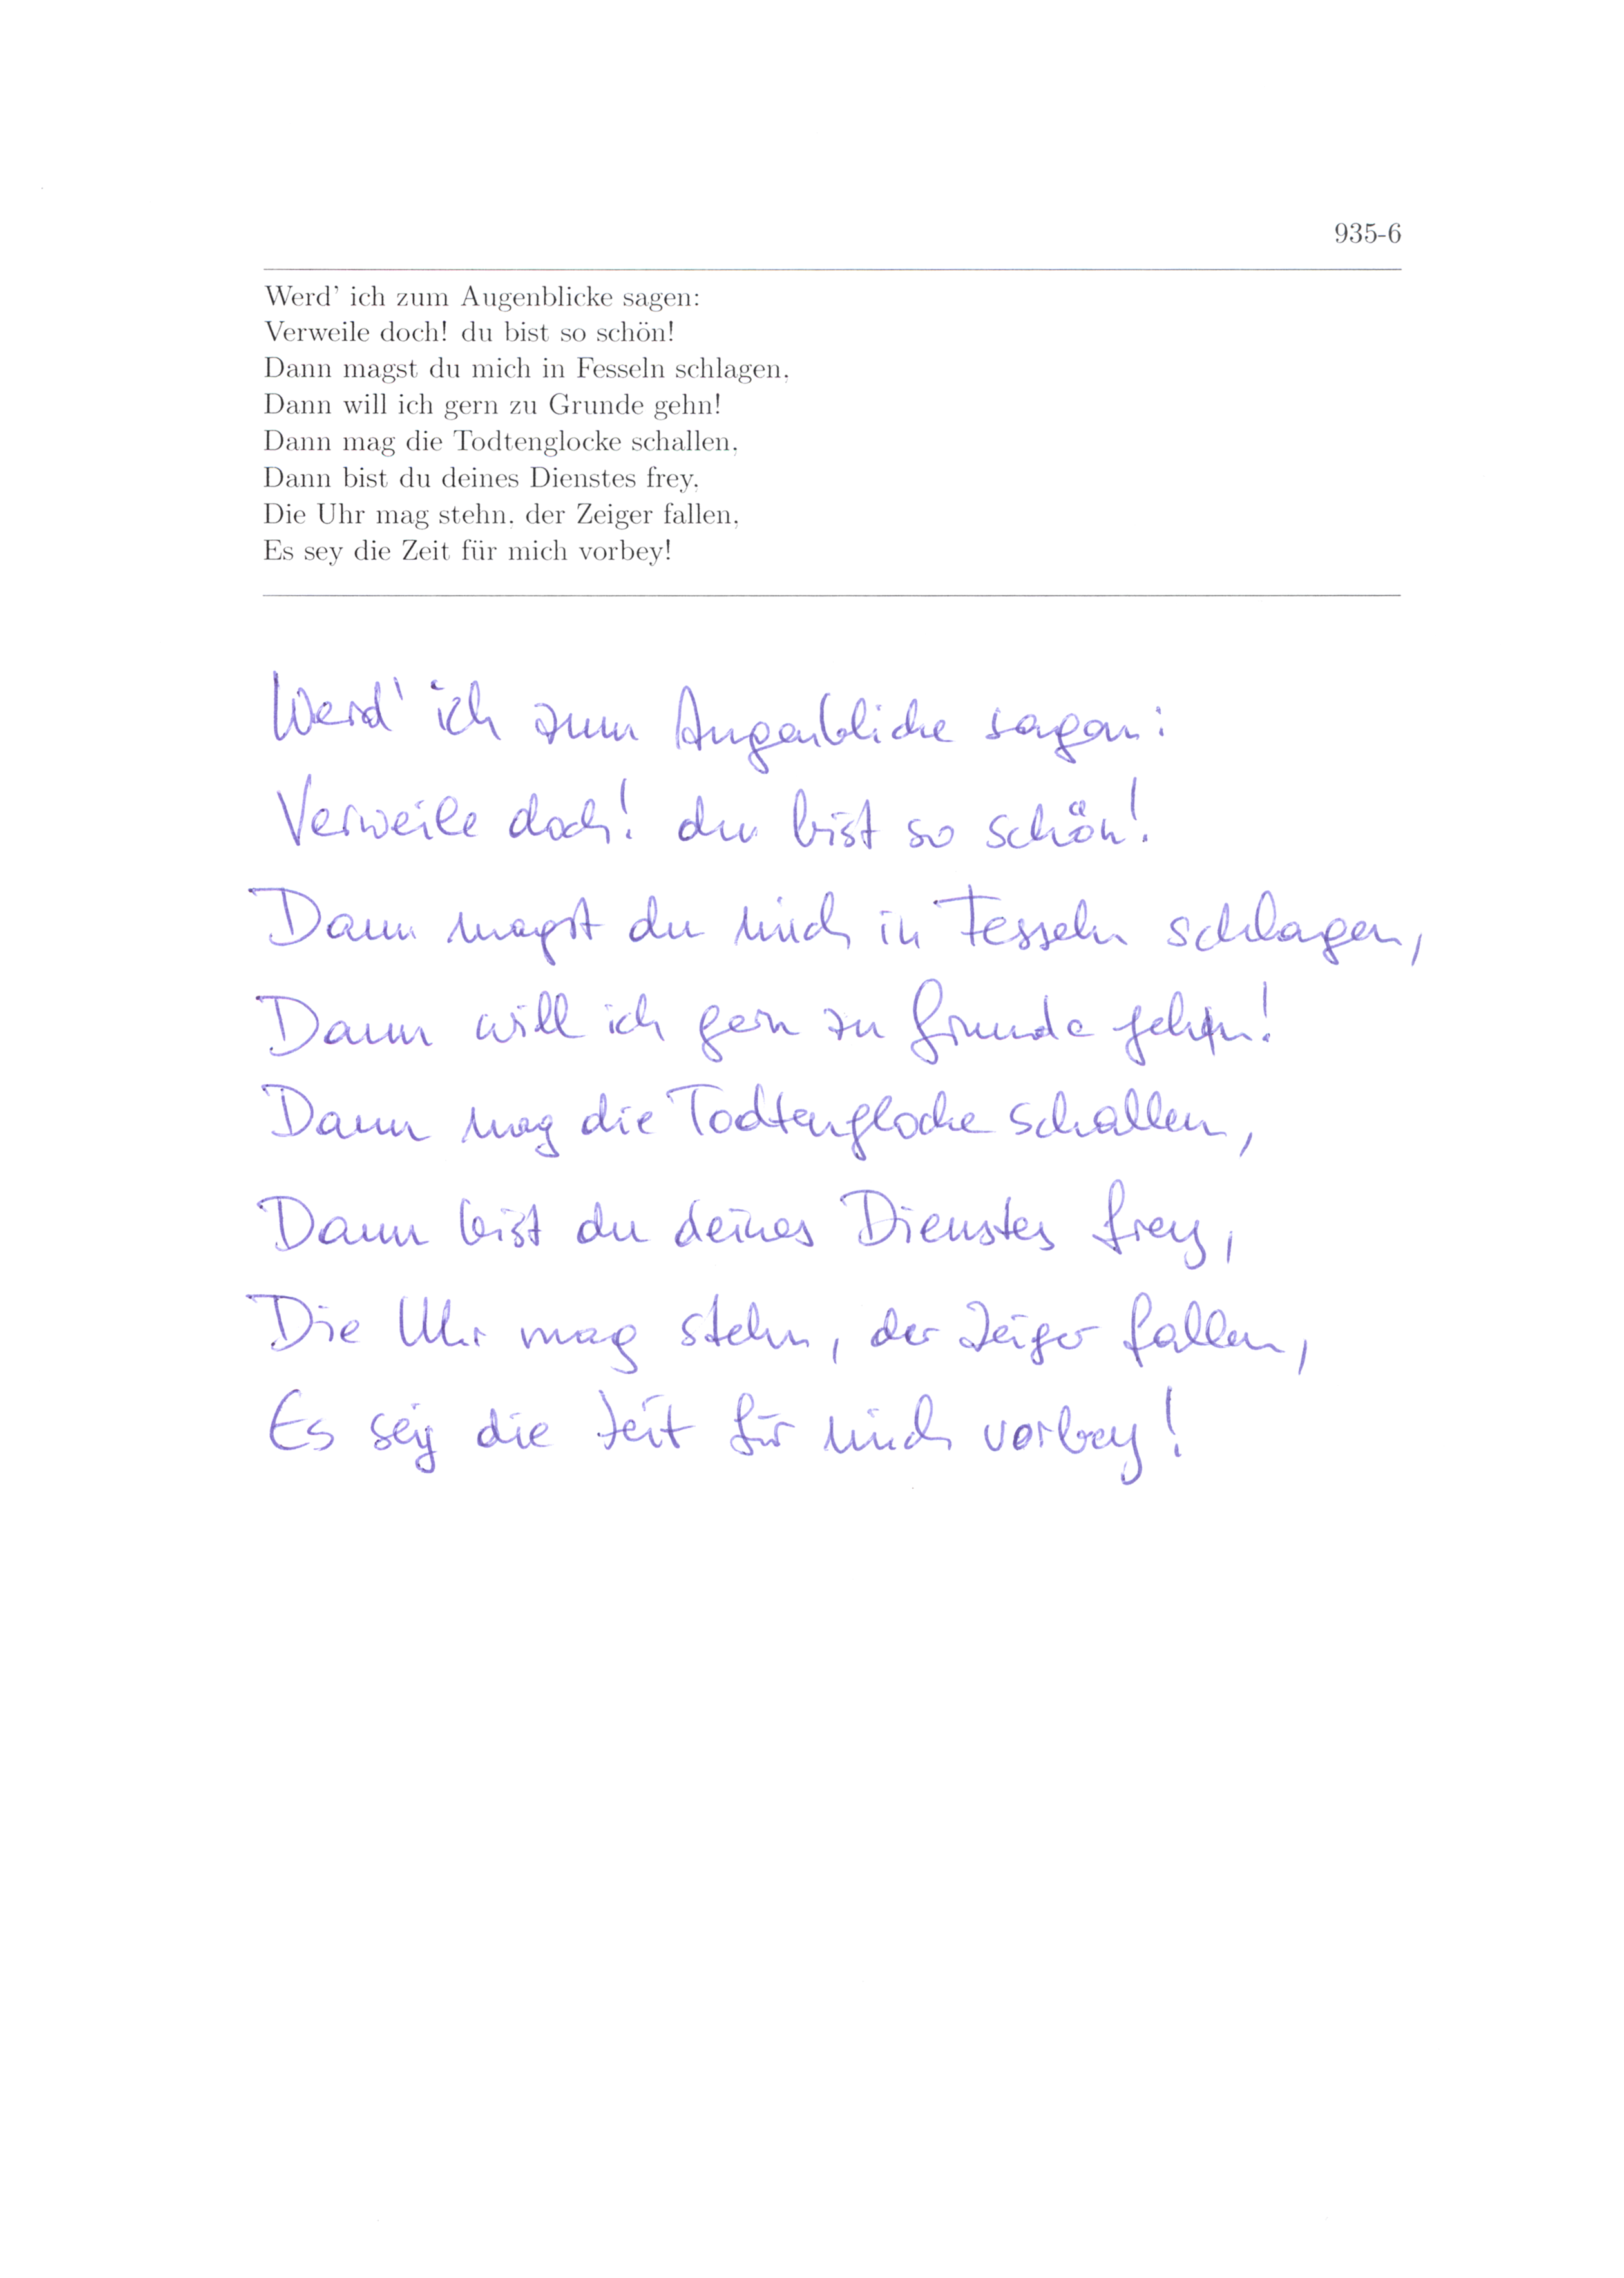 935-6
Werd' ich zum Augenblicke sagen:
Verweile doch! du bist so schön!
Dann magst du mich in Fesseln schlagen,
Dann will ich gern zu Grunde gehn!
Dann mag die Todtenglocke schallen,
Dann bist du deines Dienstes frey,
Die Uhr mag stehn, der Zeiger fallen,
Es sey die Zeit für mich vorbey!
Werd' ich zum Augenblicke sagen:
Verweile doch! du bist so schön!
Dann magst du mich in Fesseln schlagen,
Dann will ich gern zu Grunde gehn!
Dann mag die Todtenglocke schallen,
Dann bist du deines Dienstes frey,
Die Uhr mag stehn, der Zeiger fallen,
Es sey die Zeit für mich vorbey!